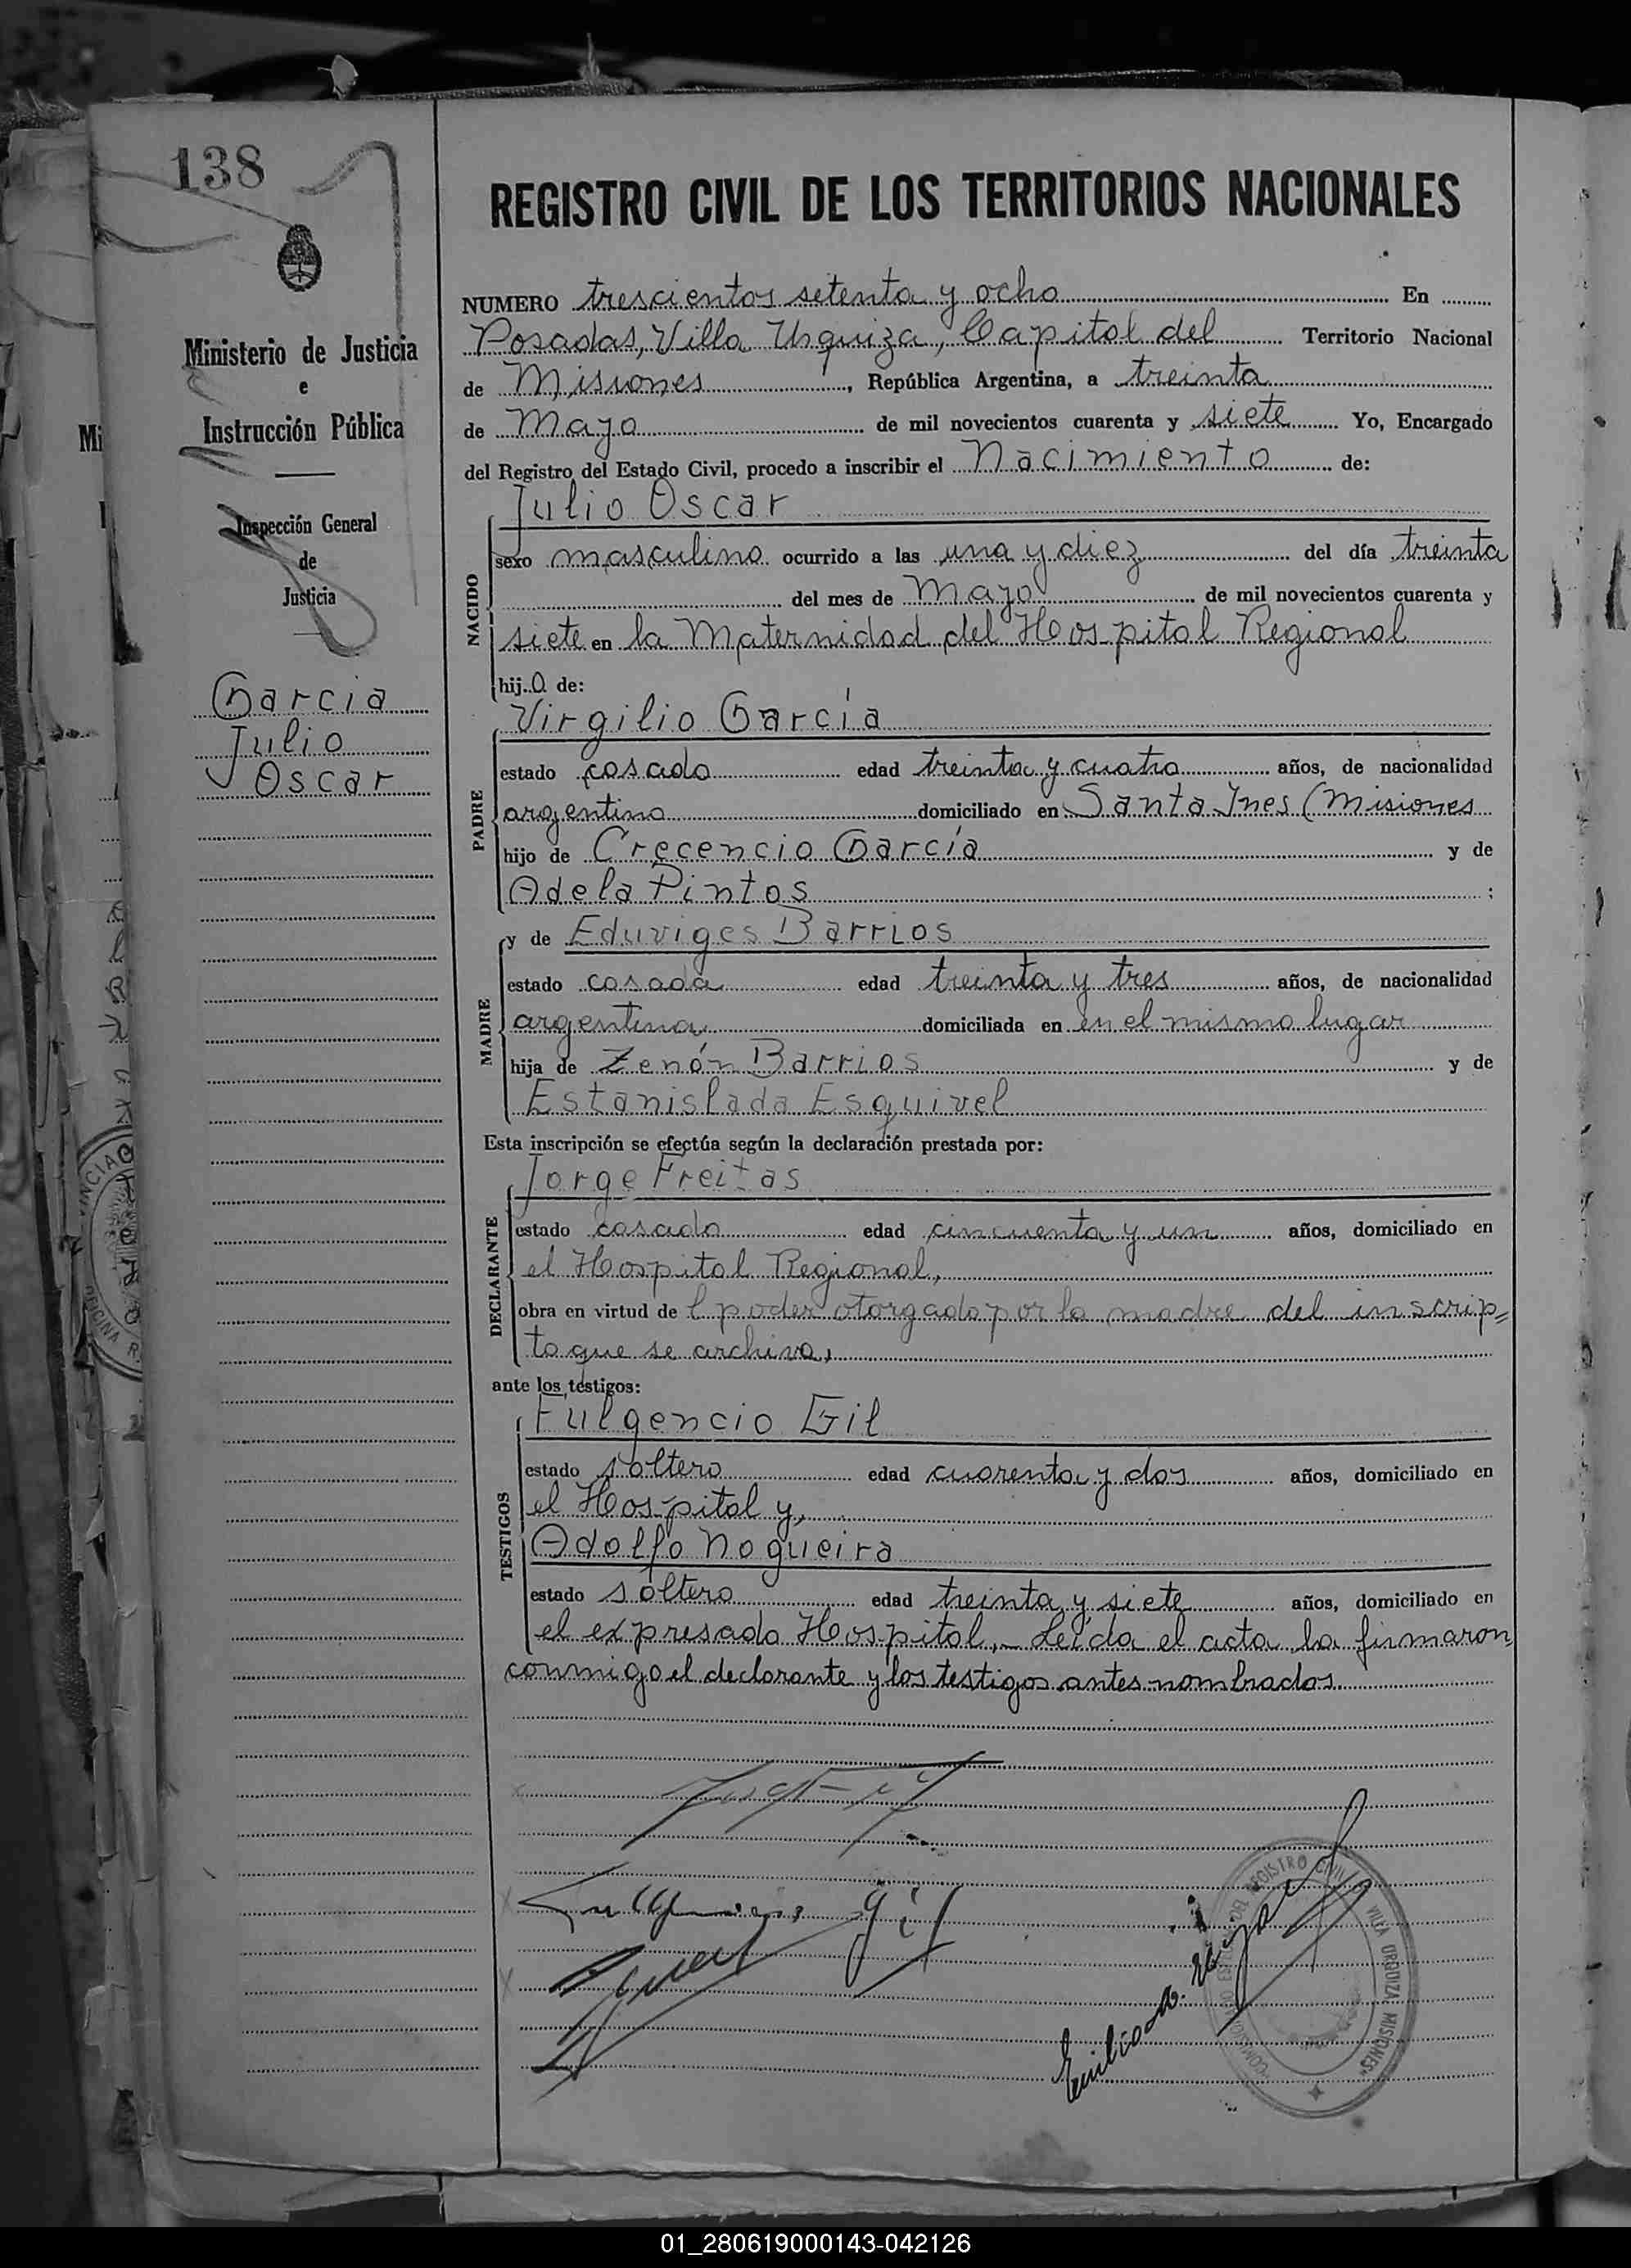 138
Ministerio de Justicia
e
Instrucción Pública
Inspección General
de
Justicia
Garcia
Julio
Oscar
REGISTRO CIVIL DE LOS TERRITORIOS NACIONALES
NUMERO trescientos setenta y ocho En
Posadas, Villa Urquiza, Capital del Territorio Nacional
de Misiones, República Argentina, a treinta
de Mayo de mil novecientos cuarenta y siete Yo, Encargado
del Registro del Estado Civil, procedo a inscribir el Nacimiento de:
Julio Oscar
NACIDO
sexo masculino ocurrido a las una y diez del día treinta
del mes de Mayo de mil novecientos cuarenta y
siete en la Maternidad del Hospital Regional
hijo de:
Virgilio García
PADRE
estado casado edad treinta y cuatro años, de nacionalidad
argentino domiciliado en Santa Ines (Misiones
hijo de Crecencio García y de
Adela Pintos ;
y de Eduviges Barrios
MADRE
estado casada edad treinta y tres años, de nacionalidad
argentina domiciliada en en el mismo lugar
hija de Zenón Barrios y de
Estanislada Esquivel
Esta inscripción se efectúa según la declaración prestada por:
Jorge Freitas
DECLARANTE
estado casado edad cincuenta y un años, domiciliado en
el Hospital Regional,
obra en virtud de l poder otorgado por la madre del inscrip=
to que se archiva,
ante los testigos:
Fulgencio Gil
TESTIGOS
estado soltero edad cuarenta y dos años, domiciliado en
el Hospital y,
Adolfo Nogueira
estado soltero edad treinta y siete años, domiciliado en
el expresado Hospital,- Leída el acta la firmaron
conmigo el declarante y los testigos antes nombrados
Gil
Emilio
DEL REGISTRO CIVIL
VILLA URQUIZA MISIONES
01_280619000143-042126